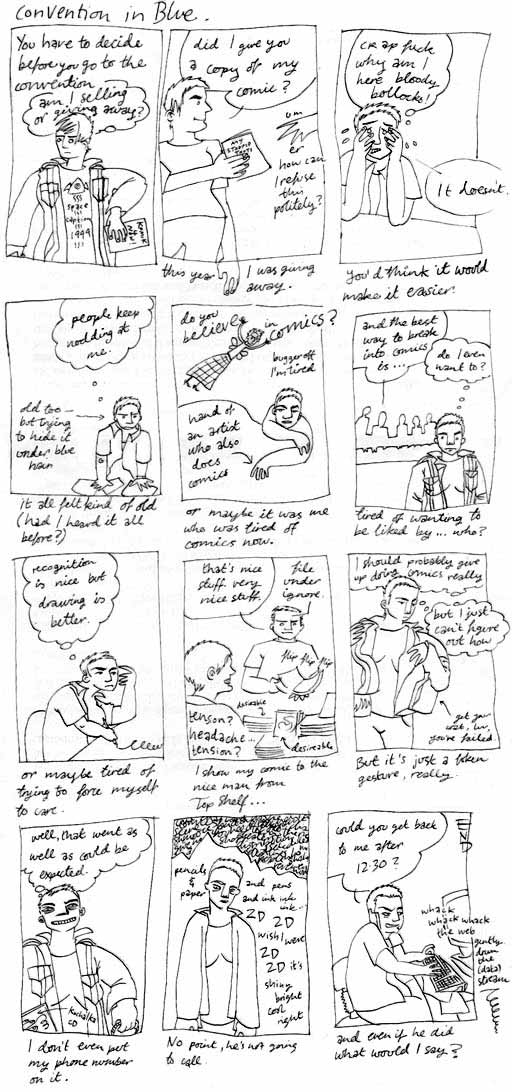 Convention in Blue.
You have to decide
before you go to the
convention...
am I selling
or giving away?
space
caption
1999
did I give you
a copy of my
comic?
MY
STOOPID
um
er
how can
I refuse
this
politely?
this year I was giving
away.
CRAP fuck
why am I
here bloody
bollocks!
It doesn't.
you'd think it would
make it easier!
people keep
nodding at
me.
old too –
but trying
to hide it
under blue
hair
it all felt kind of old
(had I heard it all
before?)
do you
believe in comics?
bugger off
I'm tired
hand of
an artist
who also
does
comics
or maybe it was me
who was tired of
comics now.
and the best
way to break
into comics
is...
do I even
want to?
tired of wanting to
be liked by... who?
recognition
is nice but
drawing is
better.
or maybe tired of
trying to force myself
to care.
that's nice
stuff very
nice stuff.
file
under
ignore.
flip flip flip
desireable
tension?
headache...
tension?
desireable
I show my comic to the
nice man from
Top Shelf...
I should probably give
up doing comics really
but I just
can't figure
out how
get your
coat, luv,
you've failed.
But it's just a token
gesture, really.
well, that went as
well as could be
expected.
Kochalka
CD
I don't even put
my phone number
on it.
pencils
&
paper
and pens
and ink ink ink
ink...
2D
2D
wish I were
2D
2D it's
shiny
bright
cool
right
No point, he's not going
to call.
could you get back
to me after
12:30?
END
whack
whack whack
the web
gently
down
the
(data)
stream
and even if he did
what would I say?